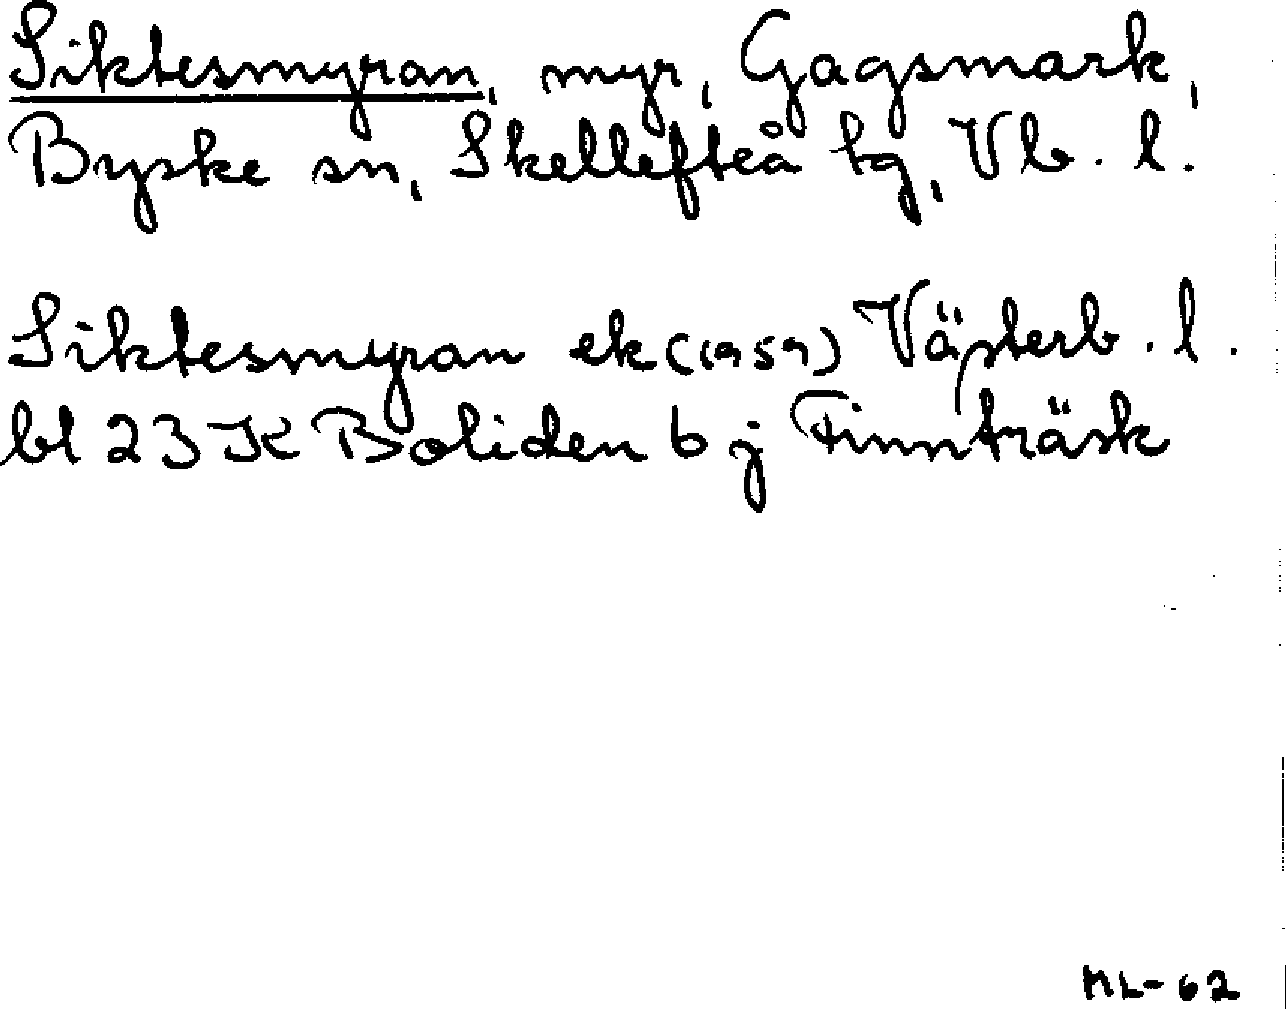 Siktesmyran, myr, Gagsmark,
Byske sn, Skellefteå tg, Vb. l.
Siktesmyran ek (1959) Västerb. l.
bl 23 K Boliden 6 j Finnträsk
ML-62